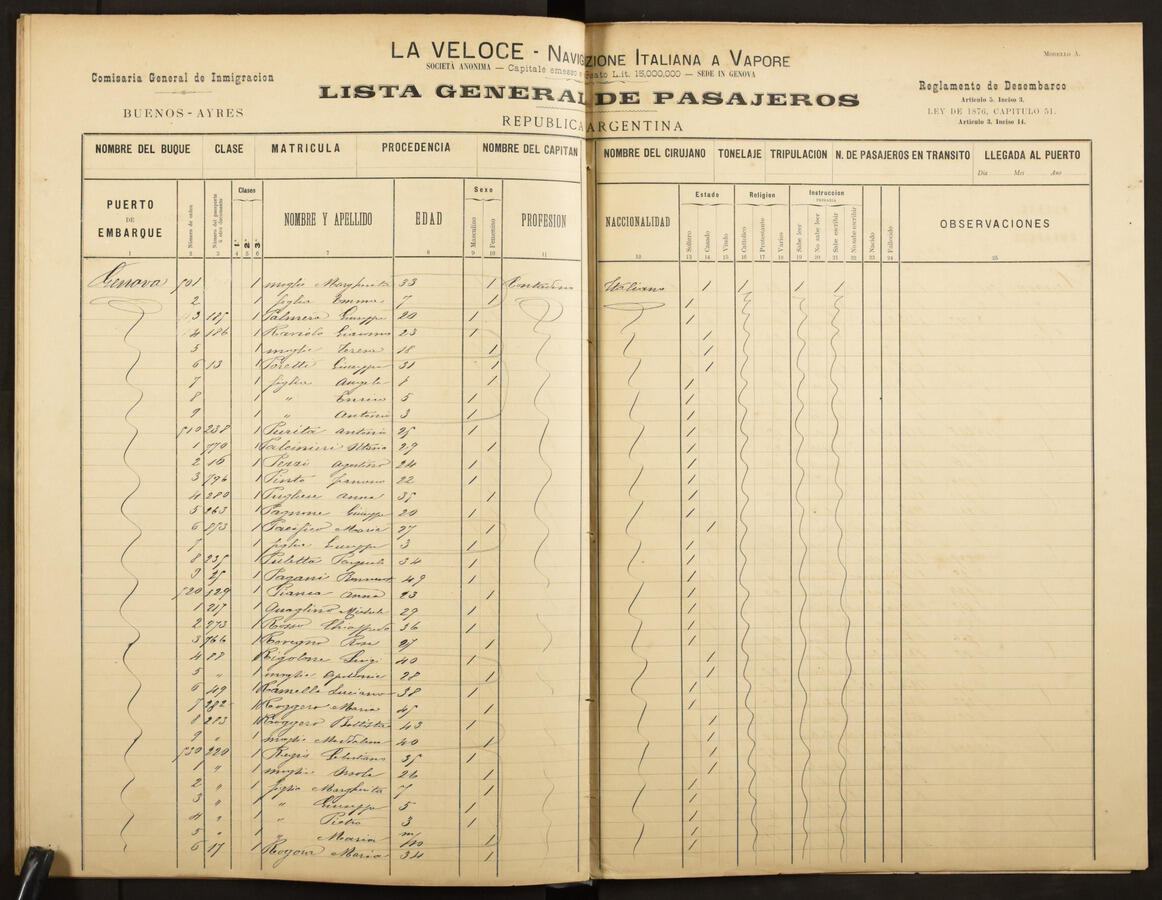 LA VELOCE - NAVIGAZIONE ITALIANA A VAPORE
SOCIETÀ ANONIMA — Capitale emesso e sato L.it. 15,000,000 — SEDE IN GENOVA
MODELLO A.
Comisaria General de Inmigracion
BUENOS-AYRES
LISTA GENERAL DE PASAJEROS
REPUBLICA ARGENTINA
Reglamento de Desembarco
Articulo 5. Inciso 3.
LEY DE 1876, CAPITULO 51.
Articulo 3. Inciso 14.
NOMBRE DEL BUQUE CLASE MATRICULA PROCEDENCIA NOMBRE DEL CAPITAN NOMBRE DEL CIRUJANO TONELAJE TRIPULACION N. DE PASAJEROS EN TRANSITO LLEGADA AL PUERTO
Dia Mes Ano
PUERTO DE EMBARQUE Número de orden Número del pasaporte ú otro documento Clases 1. 2. 3. NOMBRE Y APELLIDO EDAD Sexo Masculino Femenino PROFESION NACCIONALIDAD Estado Soltero Casado Viudo Religion Cattolico Protestante Varios Instruccion PRIMARIA Sabe leer No sabe leer Sabe escribir No sabe escribir Nacido Fallecido OBSERVACIONES
1 2 3 4 5 6 7 8 9 10 11 12 13 14 15 16 17 18 19 20 21 22 23 24 25
Genova 501 1 moglie Margherita 33 1 Contadina Italiana 1 1 1 1
2 1 figlia Emma 7 1 1
3 185 1 Palmero Giuseppe 20 1 1
4 186 1 Giacomo 23 1 1
5 1 moglie Teresa 18 1 1
6 13 1 Giuseppe 31 1 1
7 1 figlia Angela 1 1
8 1 " Enrico 5 1 1
9 1 " Antonio 3 1 1
510 238 1 Antonio 25 1 1
1 770 1 29 1 1
2 16 1 Agostino 24 1 1
3 796 1 Pinto 22 1 1
4 280 1 Pugliese Anna 35 1 1
5 263 1 Pagnone Giuseppe 20 1 1
6 253 1 Pacifico Maria 27 1 1
7 1 figlio Giuseppe 3 1 1
8 235 1 34 1 1
9 25 1 Pagani 49 1 1
520 129 1 Pianca Anna 23 1 1
1 217 1 Quaglino Michele 29 1 1
2 273 1 Rosso Chiaffredo 36 1 1
3 766 1 Rovegno Rosa 27 1 1
4 88 Rigolone Luigi 40 1 1
5 " 1 moglie Apollonia 28 1 1
6 49 1 Ramella Luciano 38 1 1
7 282 1 Ruggero Maria 45 1
8 283 1 Ruggero Battista 43 1 1
9 " 1 moglie Maddalena 40 1 1
530 220 1 Regis Celestiano 35 1 1
1 " 1 moglie 26 1 1
2 " 1 figlia Margherita 7 1 1
3 " 1 " Giuseppe 5 1 1
4 " 1 " Pietro 3 1 1
5 " 1 " Maria m/10 1 1
6 17 1 Maria 34 1 1